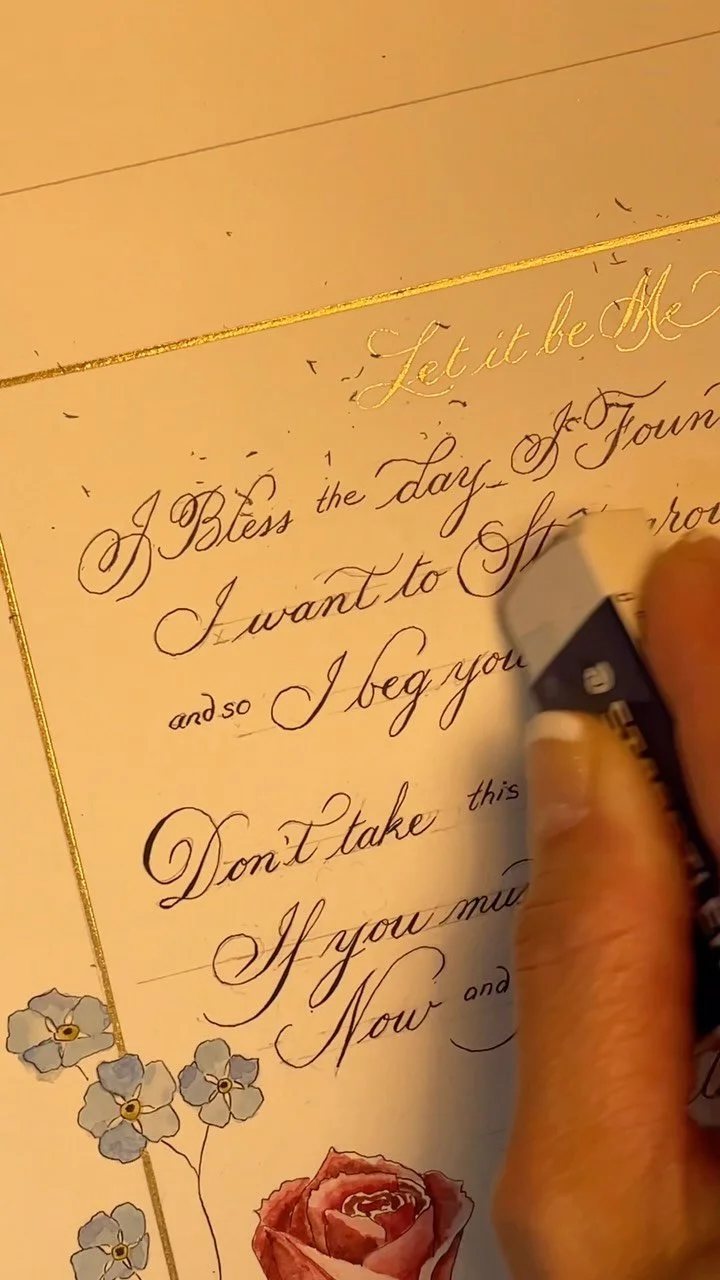 Let it be Me
I Bless the day I Foun
I want to St
and so I beg you
Don't take this
If you mu
Now and